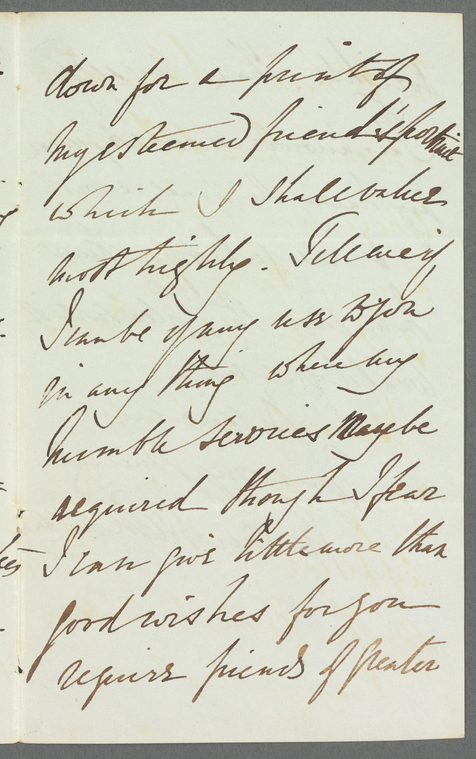 down for a print of
my esteemed friend's portrait
which I shall value
most highly. Tell me if
I can be of any use to you
in any thing where my
humble services may be
required though I fear
I can give little more than
good wishes for you
require friends of greater